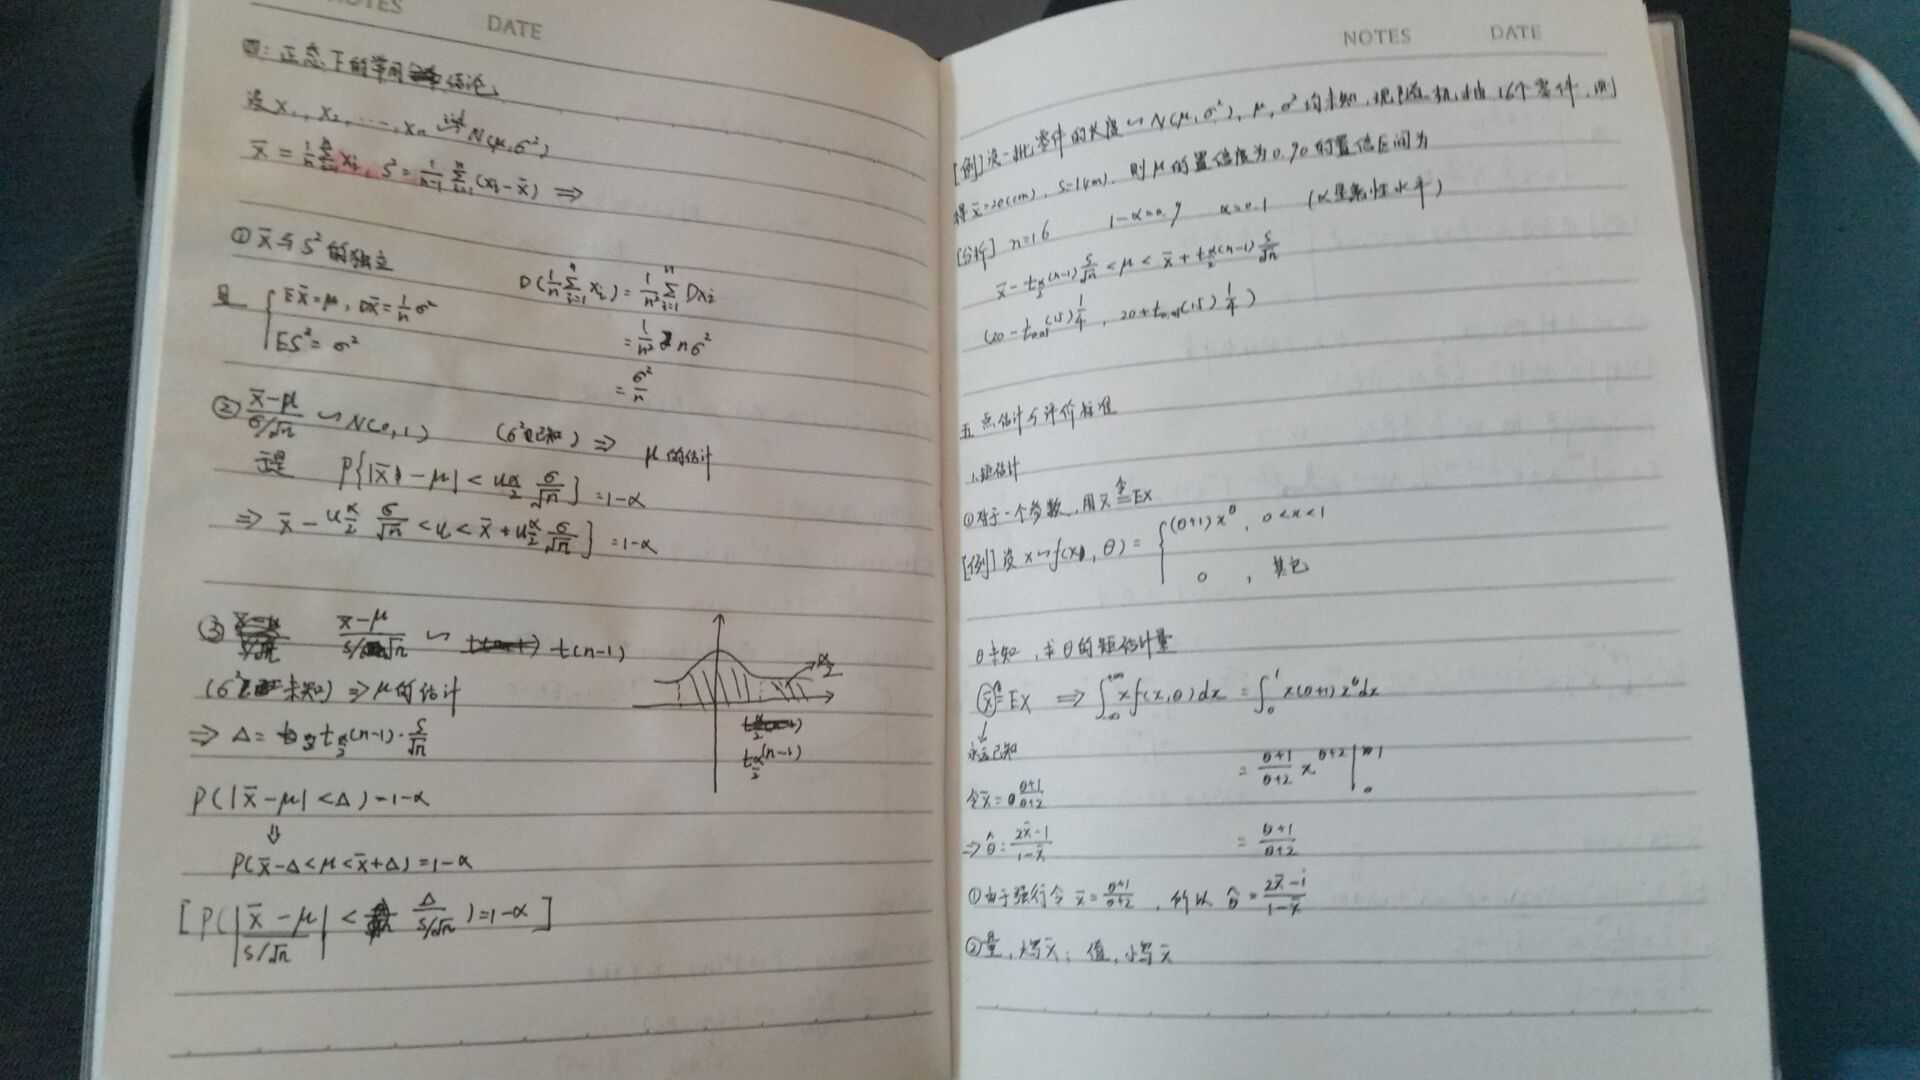 NOTES DATE
四: 正态下的常用结论:
设 X₁, X₂, ..., Xn iid ~ N(μ, σ²)
X̄ = 1/n Σ Xi, S² = 1/(n-1) Σ (Xi - X̄) ⇒
① X̄与S²的独立
且 { EX̄ = μ, DX̄ = 1/n σ²
ES² = σ²
D(1/n Σ Xi) = 1/n² Σ DXi
= 1/n² n σ²
= σ²/n
② (X̄-μ)/(σ/√n) ~ N(0,1) (σ²已知) ⇒ μ的估计
于是 P{|X̄ - μ| < u α/2 σ/√n} = 1-α
⇒ X̄ - u α/2 σ/√n < u < X̄ + u α/2 σ/√n } = 1-α
③ (X̄-μ)/(S/√n) ~ t(n-1)
(σ²未知) ⇒ μ的估计
⇒ Δ = t α/2 (n-1) · S/√n
α/2
t α/2 (n-1)
P(|X̄-μ| < Δ) = 1-α
⇓
P(X̄-Δ < μ < X̄+Δ) = 1-α
[P(|(X̄-μ)/(S/√n)| < Δ/(S/√n)) = 1-α]
NOTES DATE
[例] 设一批零件的长度 ~ N(μ, σ²), μ, σ²均未知, 现随机抽16个零件, 则
得 x̄=20(cm), S=1(cm). 则μ的置信度为0.90的置信区间为
[分析] n=16 1-α=0.9 α=0.1 (α显著性水平)
X̄ - t α/2 (n-1) S/√n < μ < X̄ + t α/2 (n-1) S/√n
(20 - t (15) 1/4, 20 + t (15) 1/4)
五 点估计与评价标准
1.矩估计
①对于一个参数, 用 X̄ ≙ EX
[例] 设 X~f(x, θ) = { (θ+1)x^θ, 0<x<1
0, 其它
θ未知, 求θ的矩估计量
X̄ ≙ EX ⇒ ∫_{-∞}^{+∞} x f(x,θ) dx = ∫₀¹ x(θ+1) x^θ dx
↓
永远已知
= (θ+1)/(θ+2) x^{θ+2} |₀¹
令 X̄ = (θ+1)/(θ+2)
= (θ+1)/(θ+2)
⇒ θ̂ = (2X̄-1)/(1-X̄)
①由于强行令 X̄ = (θ+1)/(θ+2), 所以 θ̂ = (2X̄-1)/(1-X̄)
②量, 大写X̄; 值, 小写x̄